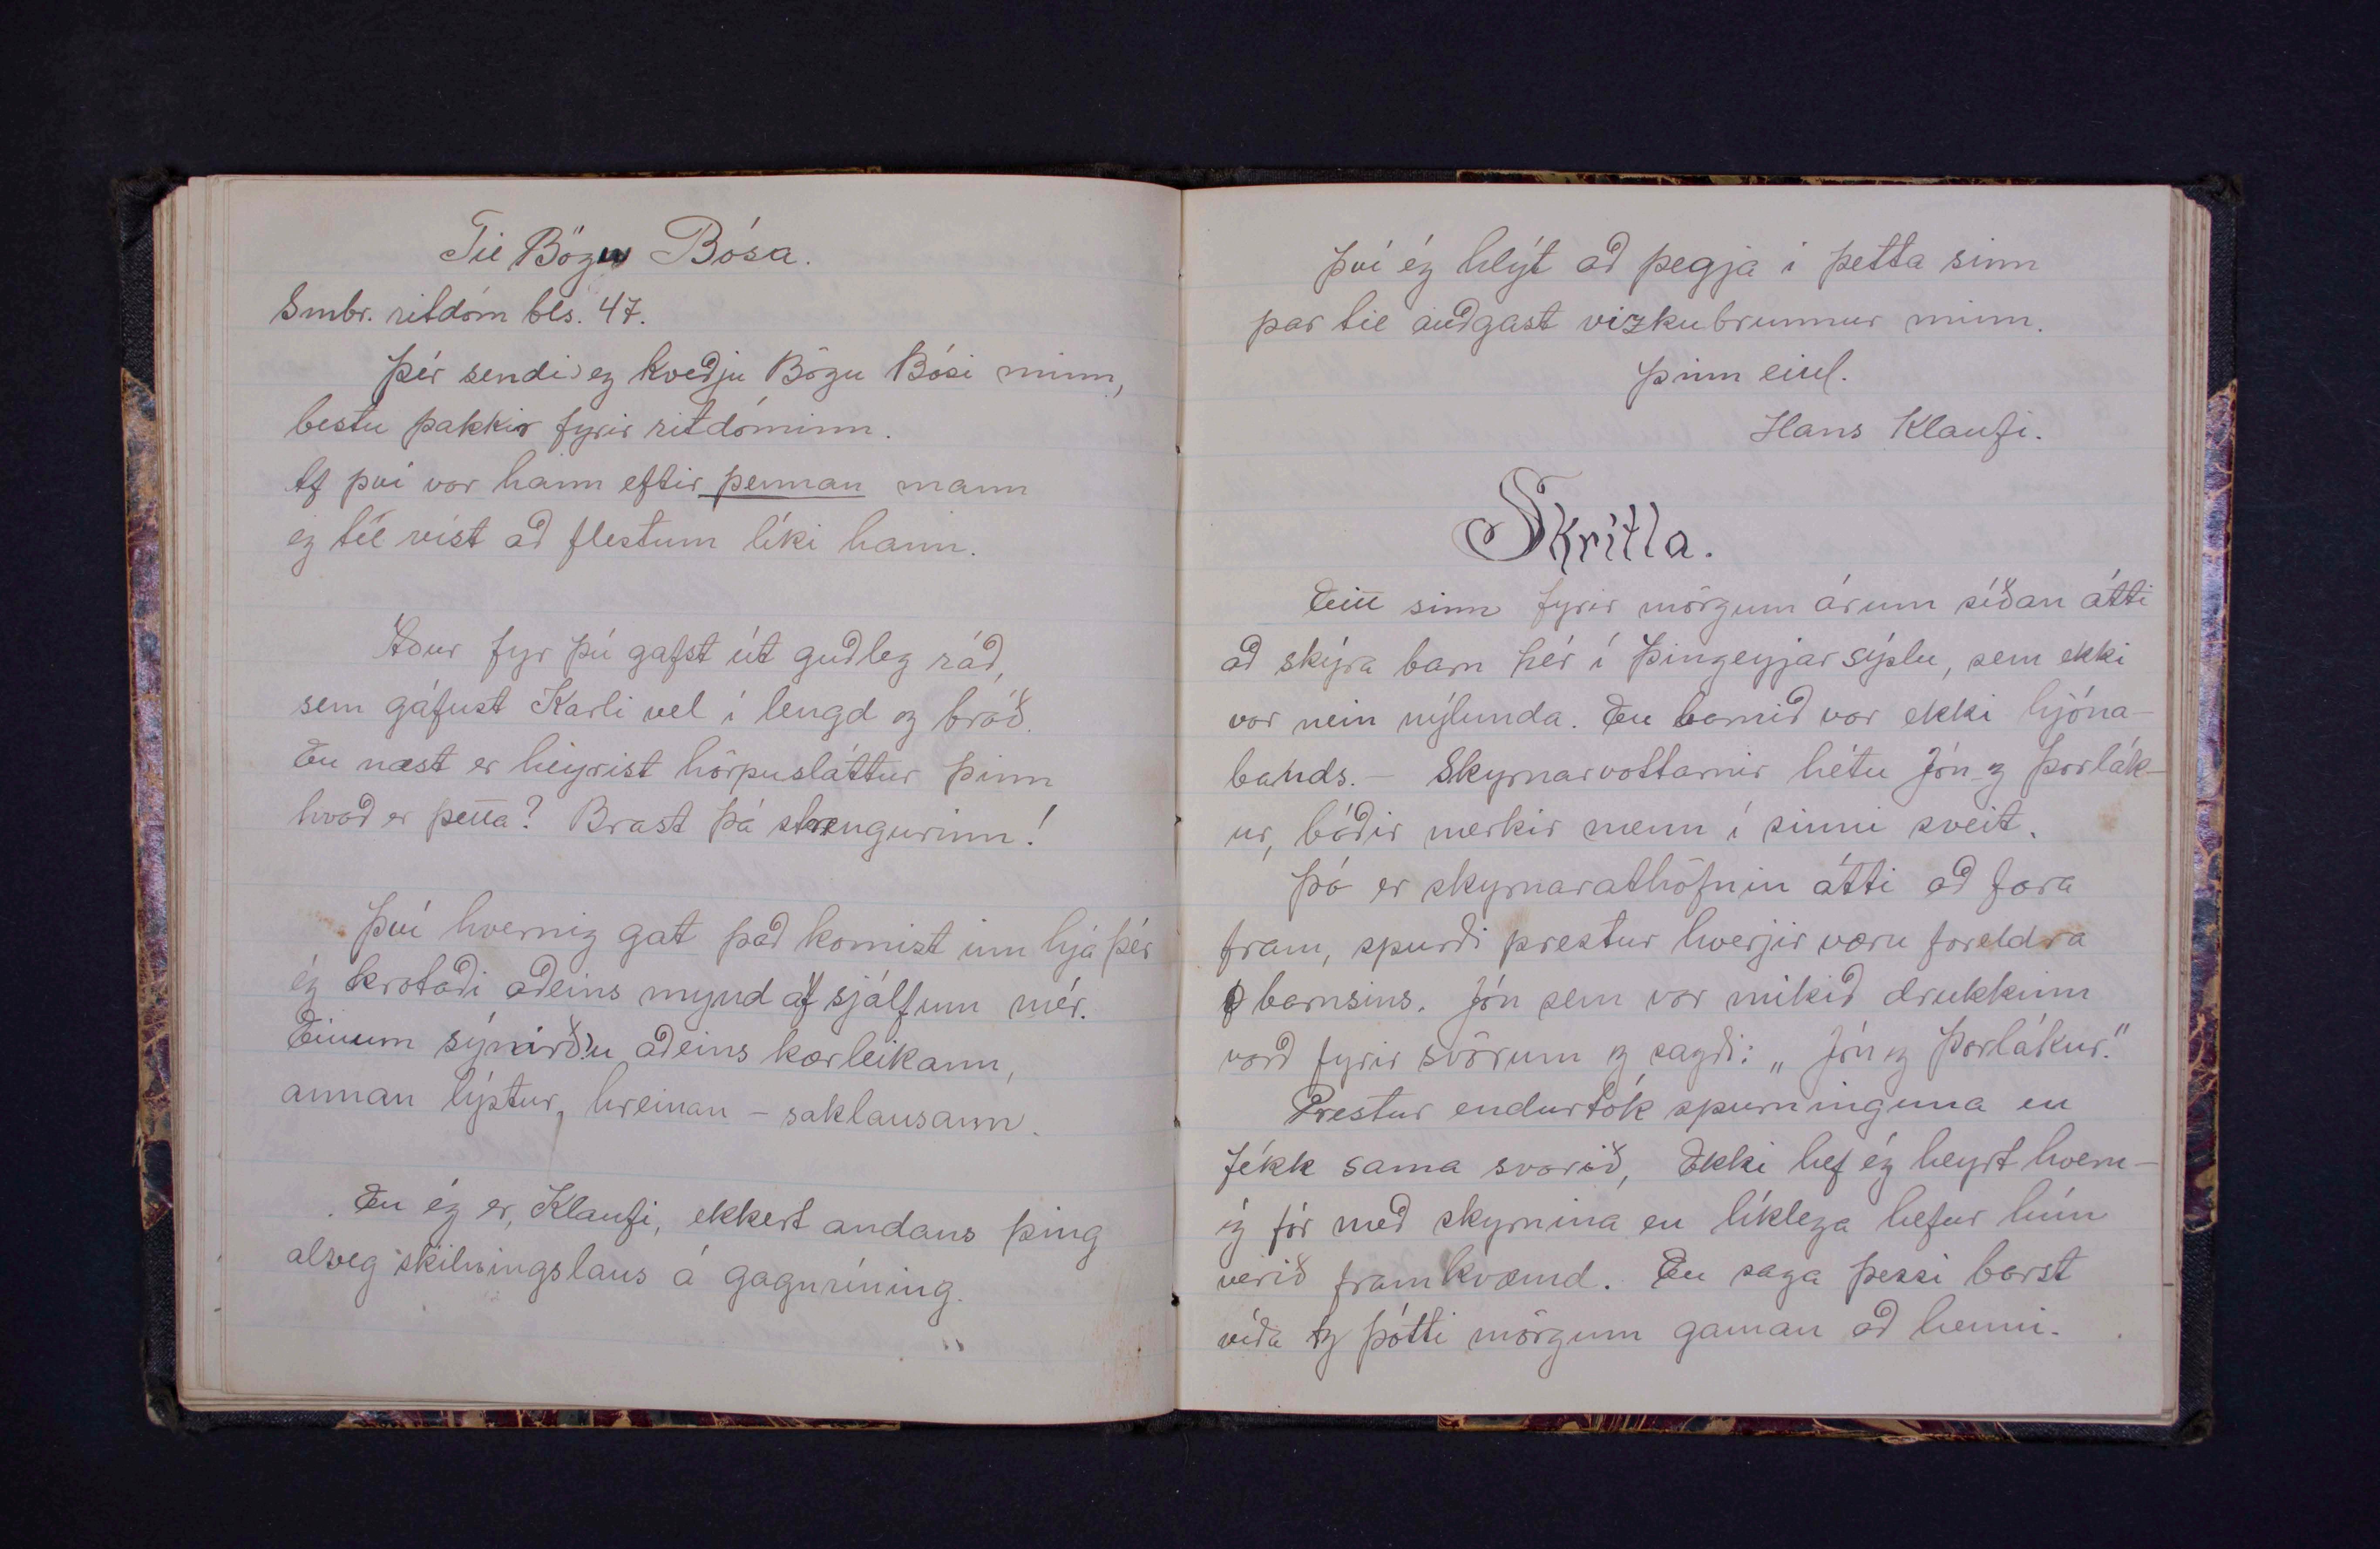 Til Bögu Bósa.
Smbr. ritdóm bls. 47.
Þér sendi eg kveðju Bögu Bósi minn,
bestu þakkir fyrir ritdóminn.
Af því var hann eftir þennan mann
eg tel víst að flestum líki hann.
Aður fyr þú gafst út guðleg ráð,
sem gáfust Karli vel í lengd og bráð.
En næst er heyrist hörpusláttur þinn
hvað er þetta? Brast þá strengurinn!
Því hvernig gat það komist inn hjá þér
ég krotaði aðeins mynd af sjálfum mér.
Einum sýnirðu aðeins kærleikann,
annan lýstur, hreinan - saklausann.
En ég er, Klaufi, ekkert andans þing
alveg skilningslaus á gagnrýning.
Því ég hlýt að þegja í þetta sinn
þar til auðgast vizkubrunnur minn.
Þinn einl.
Hans Klaufi.
Skrítla.
Eitt sinn fyrir mörgum árum síðan átti
að skýra barn hér í Þingeyjarsýslu, sem ekki
var nein nýlunda. En barnið var ekki hjóna-
bands. - Skyrnarvottarnir hétu Jón og Þorlák-
ur, báðir merkir menn í sinni sveit.
Þá er skyrnarathöfnin átti að fara
fram, spurði prestur hverjir væru foreldra
barnsins. Jón sem var mikið drukkinn
varð fyrir svörum og sagði: „Jón og Þorlákur."
Prestur endurtók spurninguna en
fékk sama svarið, Ekki hef ég heyrt hvern-
ig fór með skyrnina en líklega hefur hún
verið framkvæmd. En saga þessi barst
víða og þótti mörgum gaman að henni.